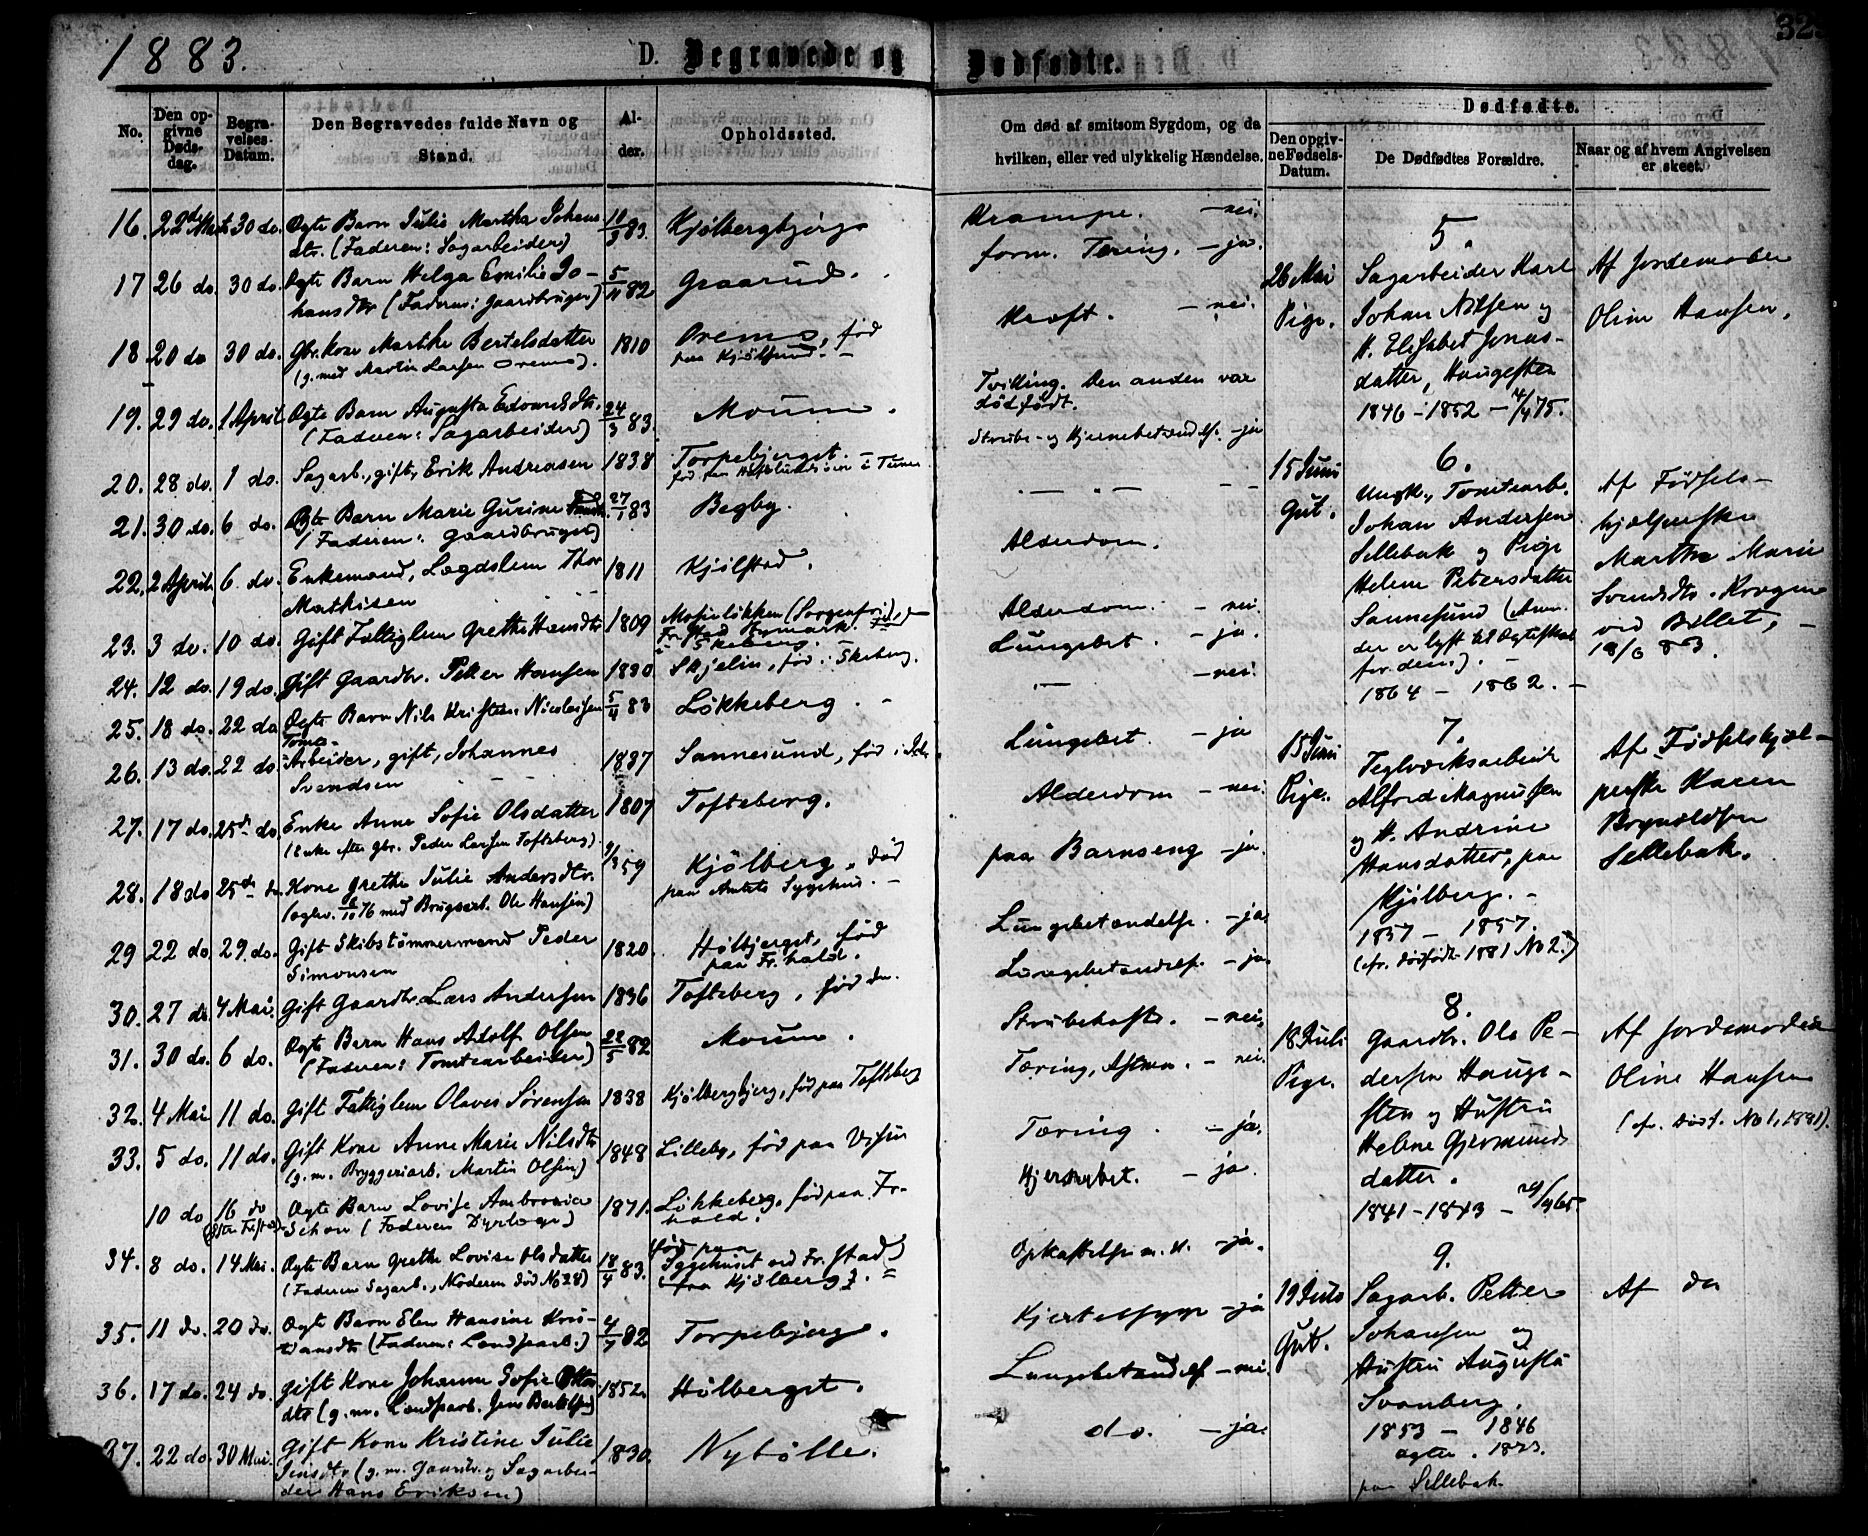 1883.
D. Begravede og Dødfødte.
32
No.
Den opgivne Dødsdag.
Begravelses-Datum.
Den Begravedes fulde Navn og Stand.
Alder.
Opholdssted.
Om død af smitsom Sygdom, og da hvilken, eller ved ulykkelig Hændelse.
Dødfødte.
Den opgivne Fødsels-Datum.
De Dødfødtes Forældre.
Naar og af hvem Angivelsen er skeet.
16. 22de Marts 30 do. Ægte Barn Julie Martha Johans-
dtr. (Faderen: Sagarbeider) 83. Kjølbergbjerg
17 26 do. 30 do. Ægte Barn Helga Emilie Jo-
hansdtr (Faderen: Gaardbruger) 5/11 82 Gaarud.
18 20 do 30 do. Gbr. Kone Marthe Bertelsdatter 1810 Oremo, fød
(g. med Martin Larsen Oremo). paa Kjølsund.
19. 29 do. 1 April Ægte Barn Augusta Edvardsdtr. 24/3 83. Moum.
(Faderen: Sagarbeider)
20. 28 do. 1 do. Sagarb., gift, Erik Andreasen 1838 Torpebjerget.
21. 30 do. 6 do. Ægte Barn Marie Gurine 27/1 83 Begby.
(Faderen: Gaardbruger)
22. 2 April 6. do. Enkemand, Lægdslem Thor 1811 Kjølstad.
Mathisen
23. 3 do. 10 do. Gift Fattiglem Grethe Hansdtr 1809 (Sorgenfri)
Skeberg.
24. 12 do. 19 do. Gift Gaardbr. Peter Hansen 1830 Skjelin, fød i Skeberg.
25. 18 do. 22 do. Ægte Barn Nils Kristian Nicolaisen 5/4 83 Løkkeberg
26. 13 do. 22 do. Tomte-
Arbeider, gift, Johannes 1837 Sannesund, fød i
Svendsen
27. 17 do. 25de do. Enke Anne Sofie Olsdatter 1807 Tofteberg.
(Enke efter Gbr. Peder Larsen Tofteberg).
28. 18 do 25de do Kone Grethe Julie Andersdtr. 59 Kjølberg, død
(ægtev. 76 med Brugsarb. Ole Hansen) paa Amtets Sygehus.
29 22 do. 29 do. Gift Skibstømmermand Peder 1820. Hølbjerget, fød
Simonsen paa Fr.hald.
30. 27 do 4 Mai. Gift Gaardbr. Lars Andersen 1836 Tofteberg, fød do.
31. 30 do. 6 do. Ægte Barn Hans Adolf Olsen 22/5 82 Moum.
(Faderen: Tomtearbeider)
32. 4 Mai 11 do. Gift Fattiglem Olaves Sørensen 1838 Kjølbergbjerg, fød paa Tofteberg
33. 5 do. 11 do. Gift Kone Anne Marie Nilsdtr 1848 Lilleby, fød paa
(g. m. Bryggeriarb. Martin Olsen)
10 do 16 do Ægte Barn Lovise Ambrosia 1871. Løkkeberg, fød paa Fr.-
Schou (Faderen Dyrlæge) hald.
34. 8 do. 14 Mai. Ægte Barn Grethe Lovise Olsdatter 18/4 83. fød paa
Sygehuset ved Fr.stad
(Faderen Sagarb., Moderen død No 28) fra Kjølberg.
35. 11 do. 20 do. Ægte Barn Elen Hansine Kris-
tiansdtr (Faderen: Landsarb.) 4/7 82 Torpebjerg.
36. 17 do. 24 do. Gift Kone Johanne Sofie
dtr (g. m. Landsarb. Jens Bertelsen) 1852 Hølberget.
37. 22 do. 30 Mai. Gift Kone Kristine Julie 1830. Nybølle.
Jensdtr (g. m. Gaardbr. og Sagarbei-
der Hans Eriksen)
Krampe. – nei.
form. Tæring. – ja.
Kræft. – nei.
Tvilling. Den anden var
dødfødt.
Strube- og Hjernebetændelse. – ja
Alderdom.
Alderdom. – nei.
Lungebet. – ja.
– nei.
Lungebet. – ja
Alderdom – nei.
paa Barnseng – ja.
Lungebetændelse. – ja.
Lungebetændelse. – ja.
Strubehoste. – nei.
Tæring, Astma. – nei.
Tæring. – ja.
Hjernebet. – ja.
Opkastelse m. v. – ja.
Kjertelsyge – ja
Lungebetændelse – nei.
do. – ja.
5.
26 Mai
Pige.
Sagarbeider Karl
Johan Nilsen og
H. Elisabet Jonas-
datter, Haugesten
1846 – 1852 – 75.
Af Jordemoder
Oline Hansen.
6.
15 Juni
Gut.
Ungk., Tomtearb.
Johan Andersen
Sellebak og Pige
Helene Petersdatter
Sannesund (Anm.
der er lyst til Ægteskab
for dem).
1864 – 1862. –
Af Fødsels-
hjælperske
Marthe Marie
Svendsdtr.
ved
7.
15 Juni
Pige.
Teglværksarbeider
Alfred Magnussen
og H. Andrine
Hansdatter, paa
Kjølberg. –
1857 – 1857.
(cfr. dødfødt 1881 No 2.)
Af Fødselshjæl-
perske Karen
Brynildsen
Sellebak.
8.
18 Juli
Pige.
Gaardbr. Ole Pe-
dersen Hauge-
sten og Hustru
Helene Gjermunds
datter.
1841 – 1843 –
Af Jordemoder
Oline Hansen
(cfr. dødf. No 1, 1881).
9.
19 Juli
Gut.
Sagarb. Petter
Johansen og
Hustru Augusta
Svanberg.
1853 – 1846
paa Sellebak
Af do